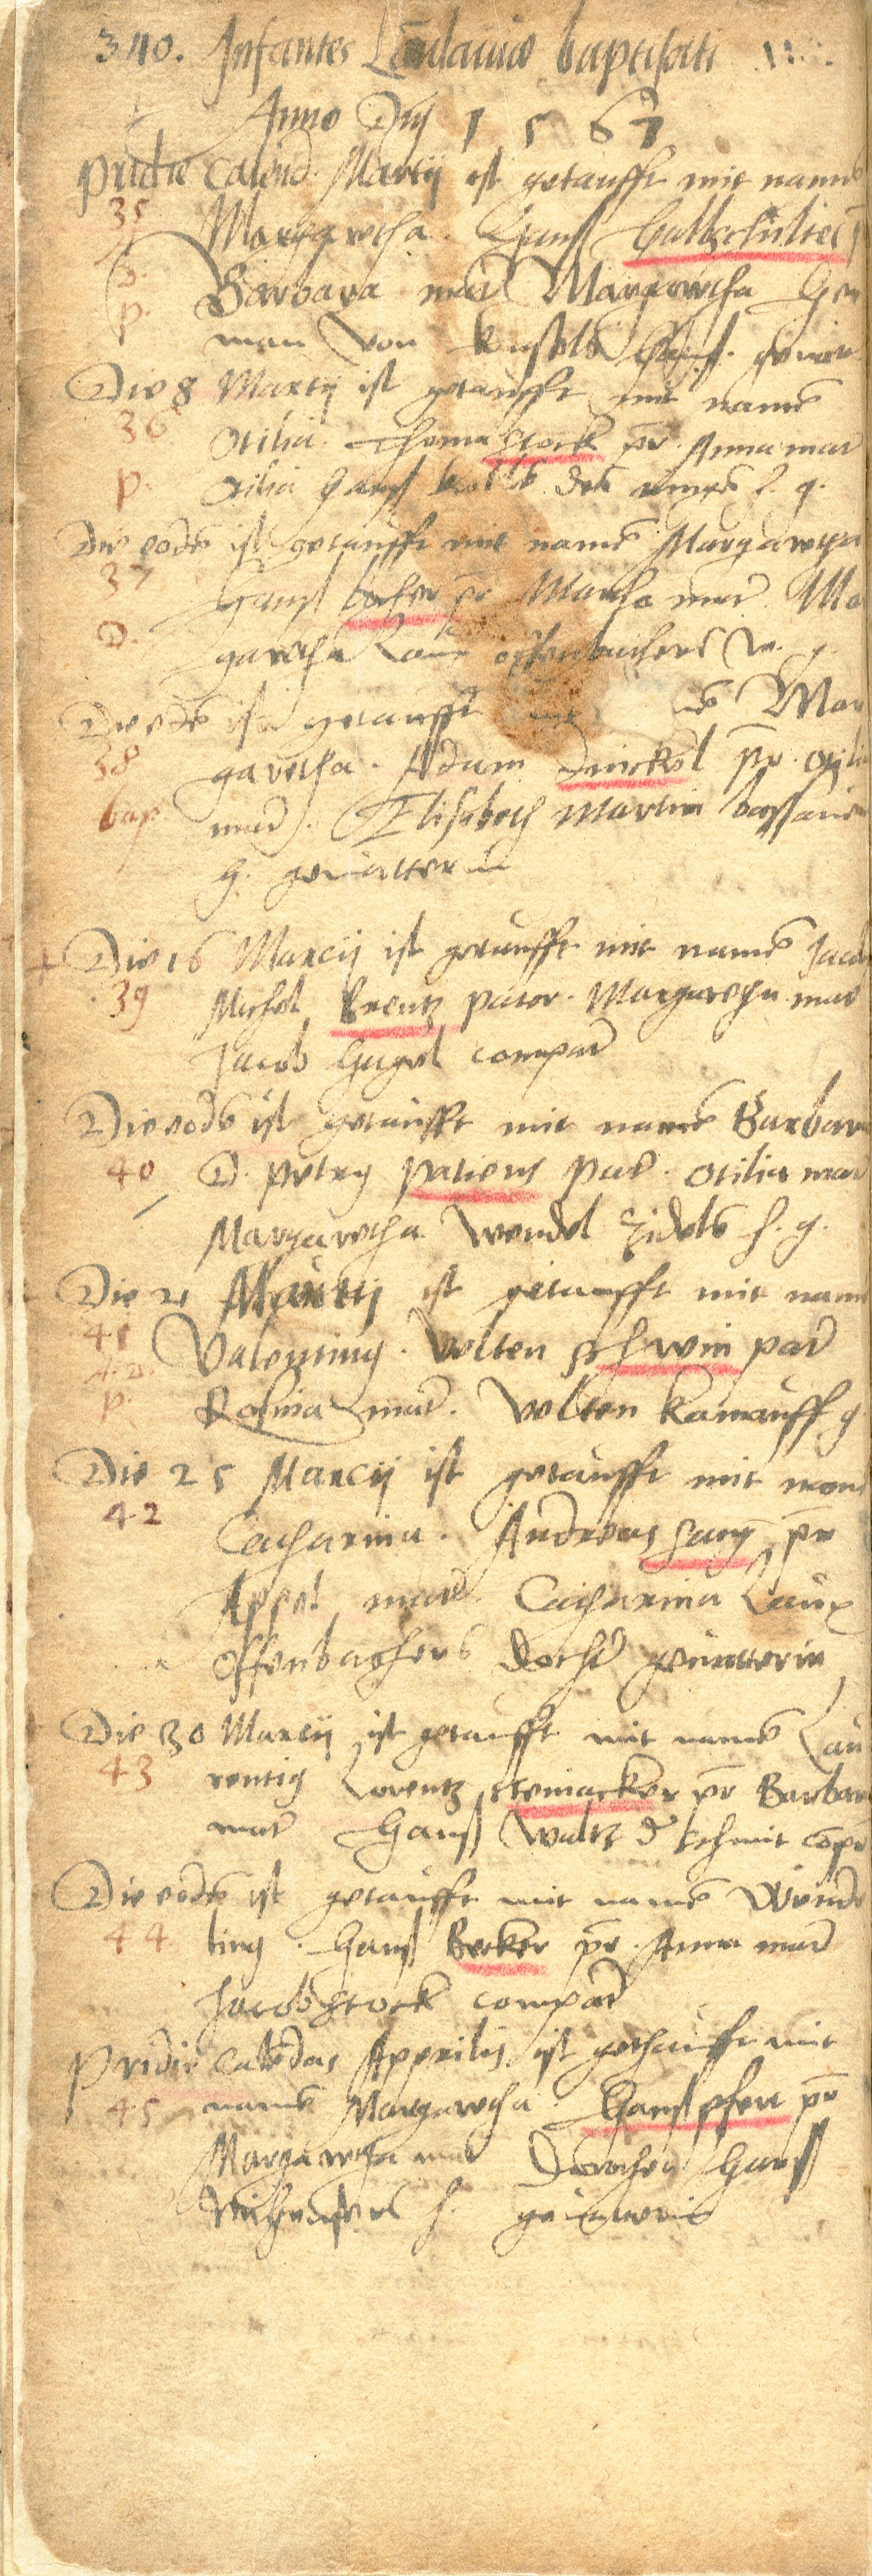 340. Infantes Landauiæ baptisati
Anno Dnj 1567
Pridie Calend. Martij ist getaufft mit namē
35 Margaretha. Hanß
p. Barbara mať Margretha
man von
Die 8 Martij ist getaufft mit namē
36 Otilia. Thoma Stock pr̄. Anna mať
p. Otilia Hanß des h. g.
Die eodē ist getaufft mit namē Margaretha
37 Hanß pr̄ Martha mať Ma
D. garetha Laux offenbachers w. g.
Die eodē ist getaufft mē Mar
38 garetha. Adam Dinckel pr̄. otilia
bap mať. Elisabeth Martin
h. geuatterin
Die 16 Marcij ist getaufft mit namē Jacob
39 Michel Brentz pater. Margaretha mať
Jacob Gugel compať
Die eodē ist getaufft mit namē Barbara
40 D. Petry Patiens pať. otilia mať
Margaretha Wendel Eidels h. g.
Die 21 Martij ist getaufft mit namē
41 Valentinꝰ. Velten schwin pať
p. Rosina mať. Velten kamauff g
Die 25 Marcij ist getaufft mit namē
42 Catharina. Andreas hanꝰ pr̄
Appel mať Catharina Laux
Offenbachers docht̄ geuatterin
Die 30 Marcij ist getaufft mit namē Lau
43 rentiꝰ Lorentz steinacker pr̄ Barbara
mať Hanß Waltz d̄ schmit copr
Die eodē ist getaufft mit namē Wende
44 linꝰ. Hanß Becker pr̄. Anna mať
Jacob stock compať
Pridie Calēdas Apprilis ist gethaufft mit
45 namē Margaretha. Hanß pfen pr̄
Margaretha mať Dorothea Hanß
h. geuatterin